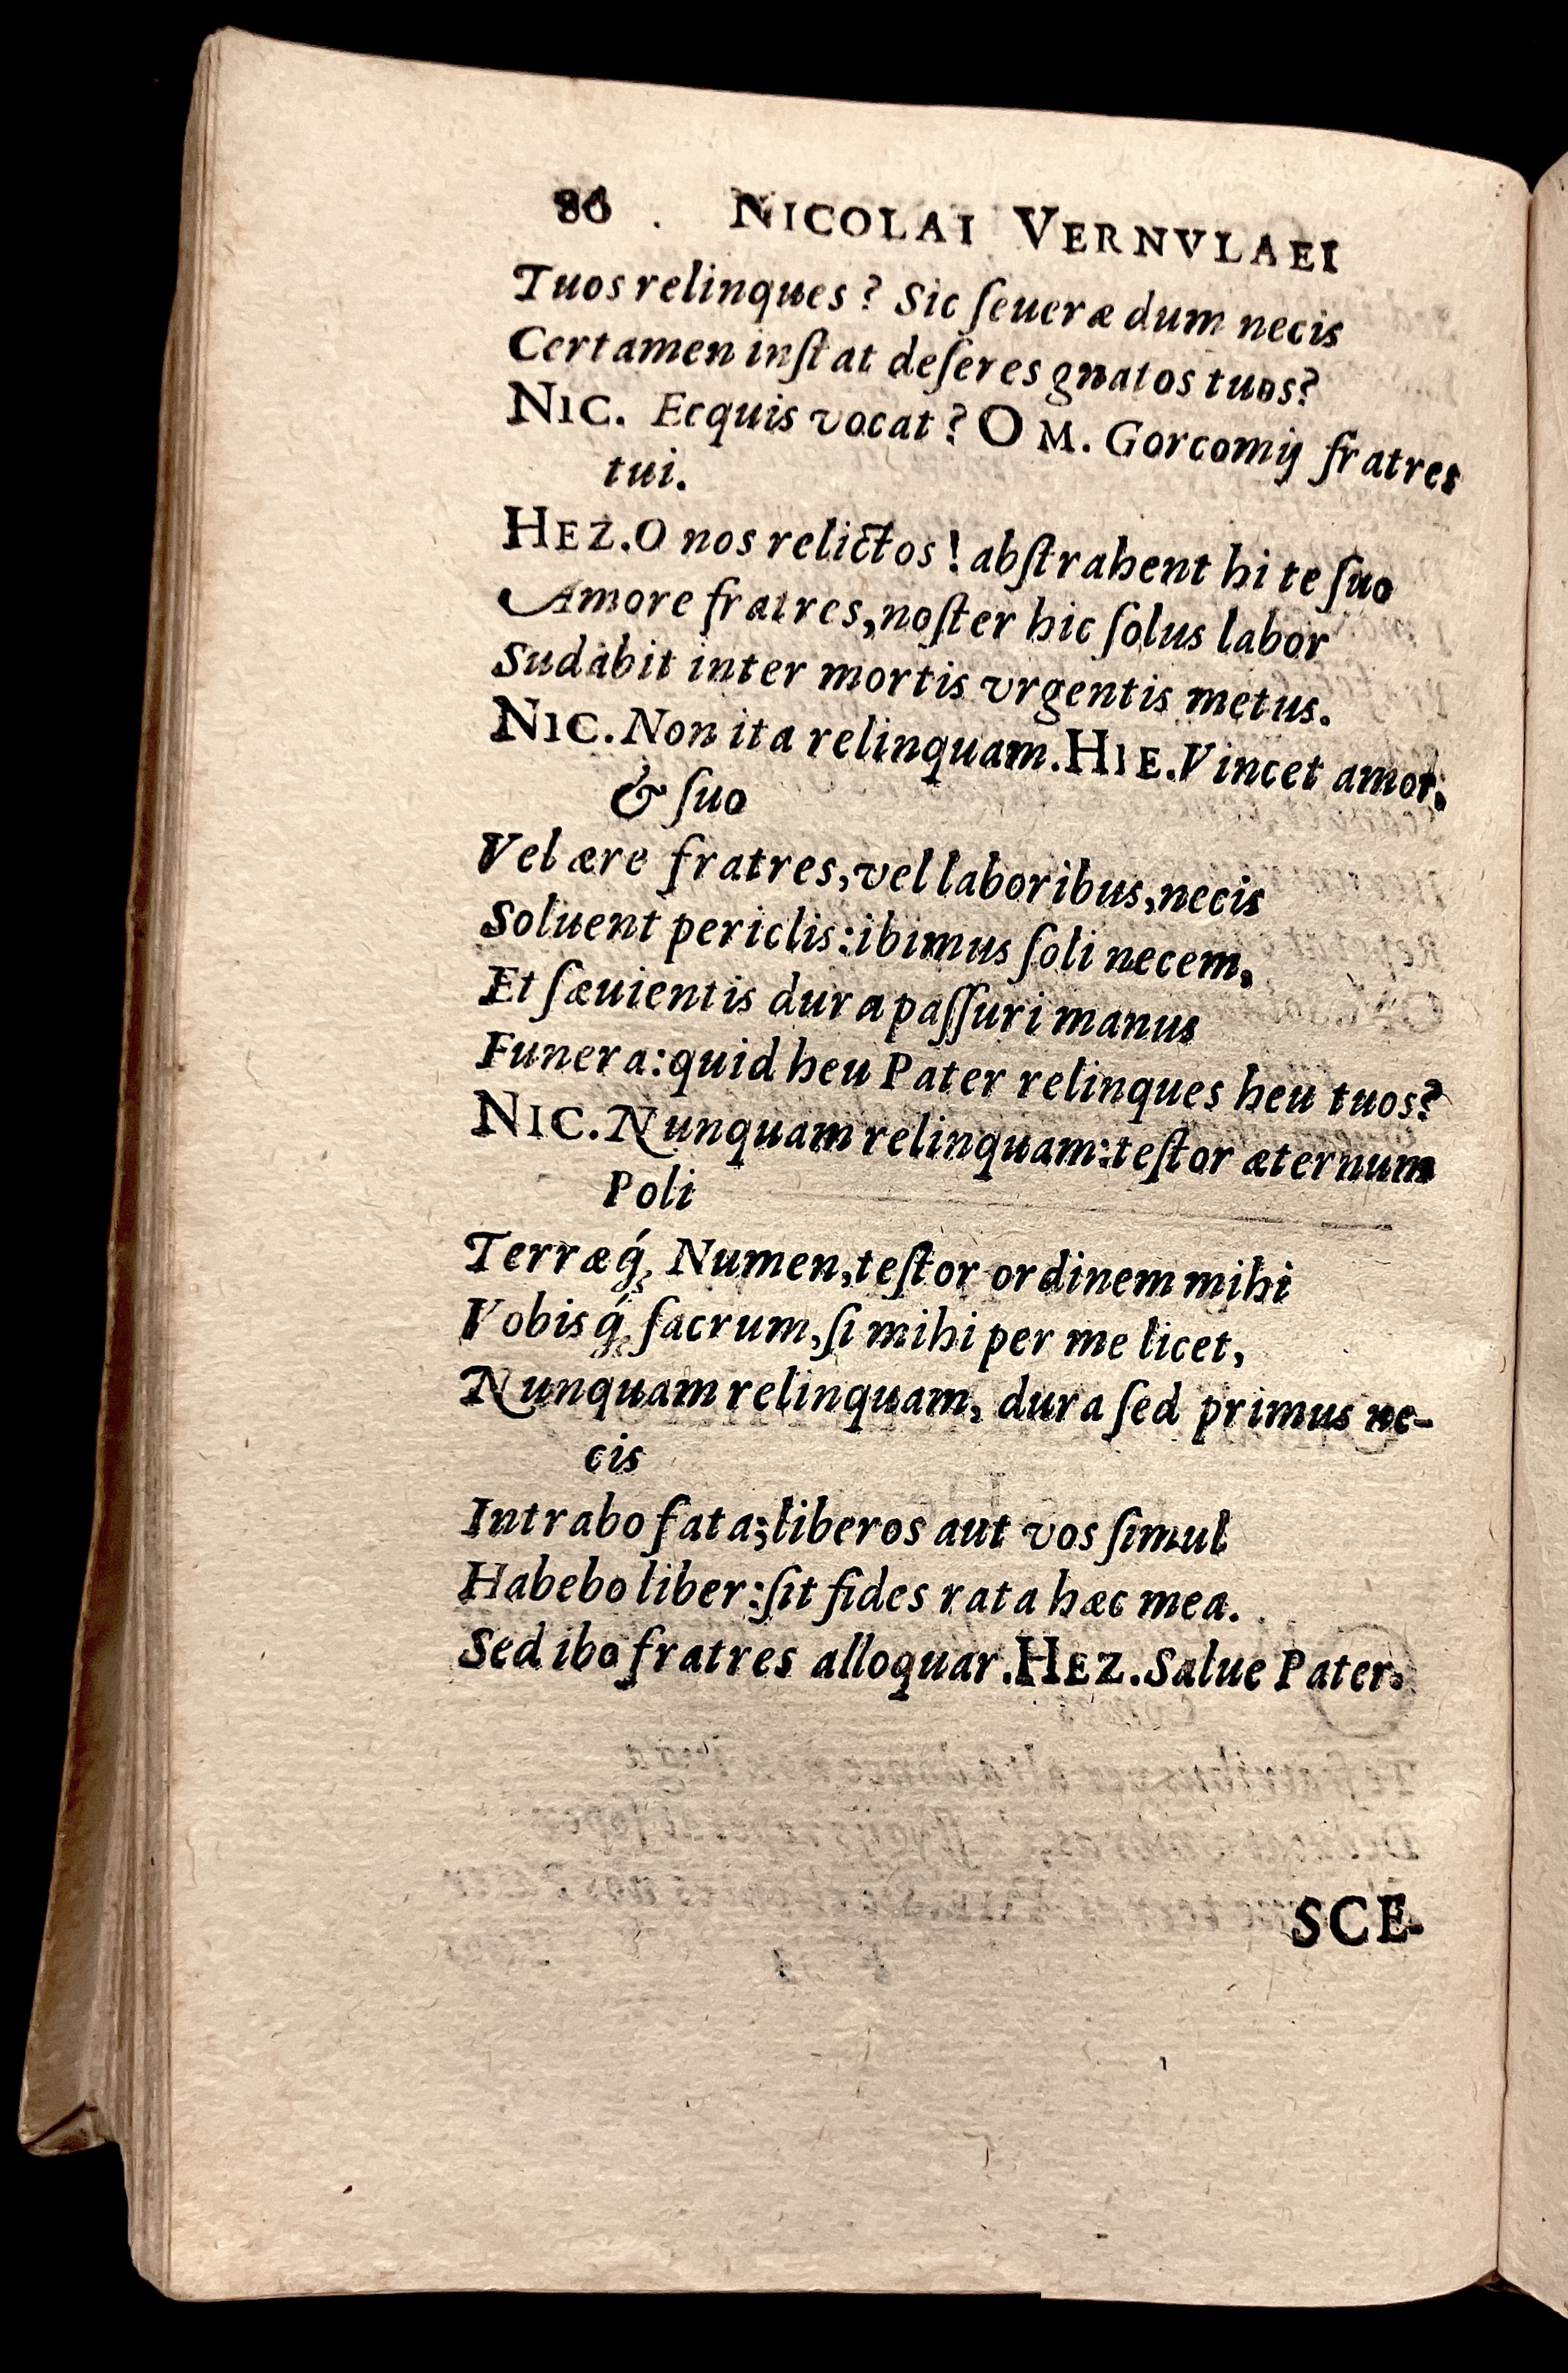 86 . NICOLAI VERNVLAEI
Tuos relinques? Sic ſeueræ dum necis
Certamen inſtat deſeres gnatos tuos?
NIC. Ecquis vocat? OM. Gorcomij fratres
tui.
HEZ. O nos relictos! abſtrahent hi te ſuo
Amore fratres, noſter hic ſolus labor
Sudabit inter mortis vrgentis metus.
NIC. Non ita relinquam. HIE. Vincet amor,
& ſuo
Vel ære fratres, vel laboribus, necis
Soluent periclis: ibimus ſoli necem,
Et ſæuientis dura paſſuri manus
Funera: quid heu Pater relinques heu tuos?
NIC. Nunquam relinquam: teſtor æternum
Poli
Terræq́; Numen, teſtor ordinem mihi
Vobisq́; ſacrum, ſi mihi per me licet,
Nunquam relinquam, dura ſed primus ne-
cis
Intrabo fata; liberos aut vos ſimul
Habebo liber: ſit fides rata hæc mea.
Sed ibo fratres alloquar. HEZ. Salue Pater.
SCE-